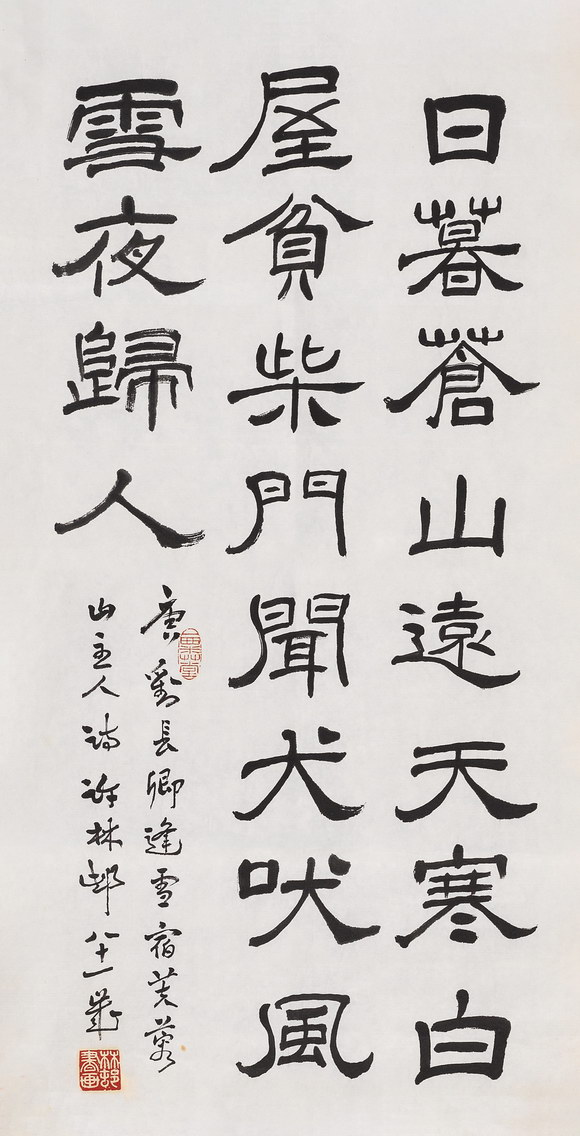 日暮蒼山遠天寒白
屋貧柴門聞犬吠風
雪夜歸人
唐劉長卿逢雪宿芙蓉
山主人詩許林邨八十一歲
林邨書畫